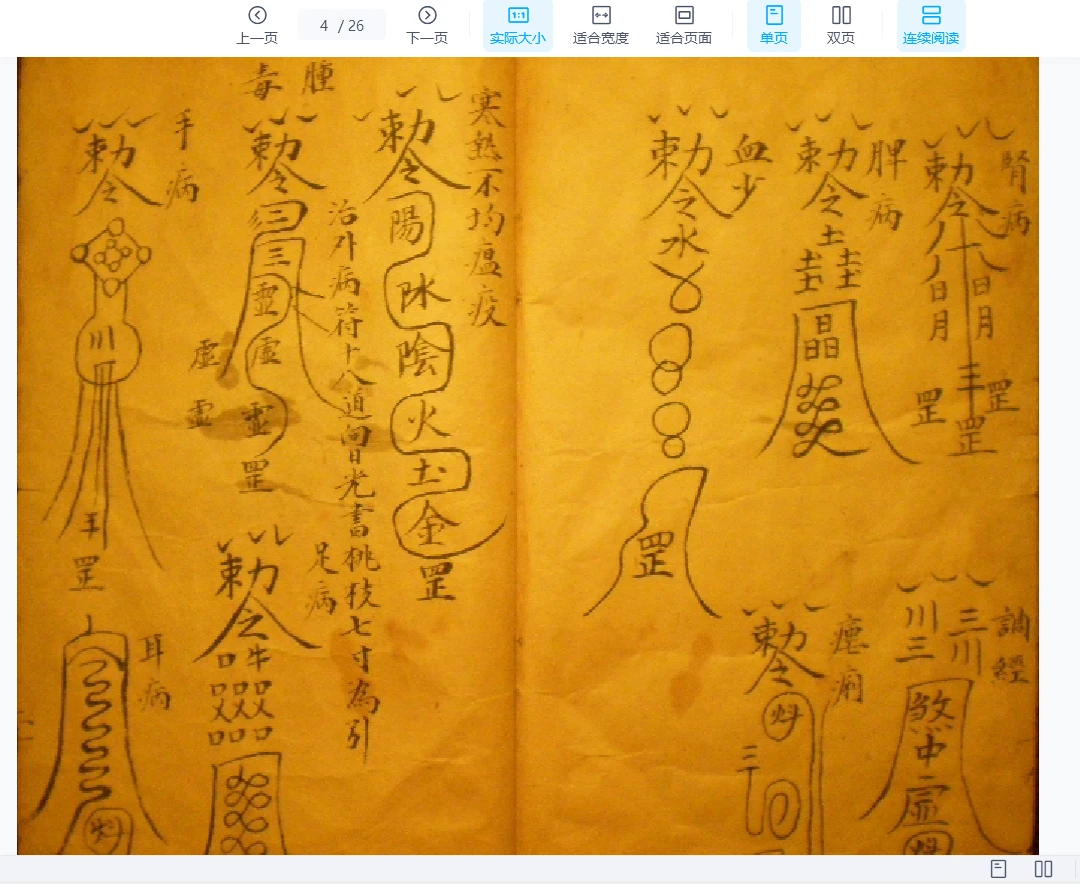 上一页
4 / 26
下一页
实际大小
适合宽度
适合页面
单页
双页
连续阅读
腎病
勅令
八日月
八日月
罡
三罡
罡
脾病
勅令
土
圭圭
晶
血少
勅令
水
罡
調經
三川
川三
煞中
虛
勅令
三
寒熱不均瘟疫
勅令
陽
水
陰
火
土
金
罡
治外病符十八道向日光書桃枝七寸為引
腫毒
勅令
三
靈
虛
虛
靈
靈
罡
手病
勅令
川
罡
足病
勅令
耳病